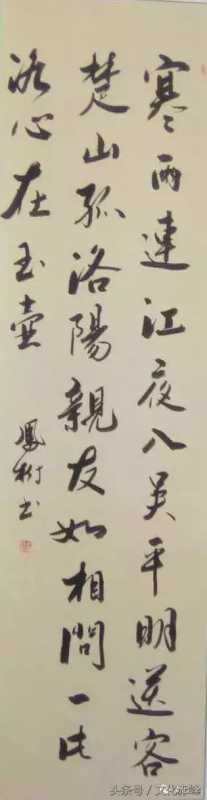 寒雨連江夜入吴平明送客
楚山孤洛陽親友如相問一片
冰心在玉壺
鳳书
头条号 /